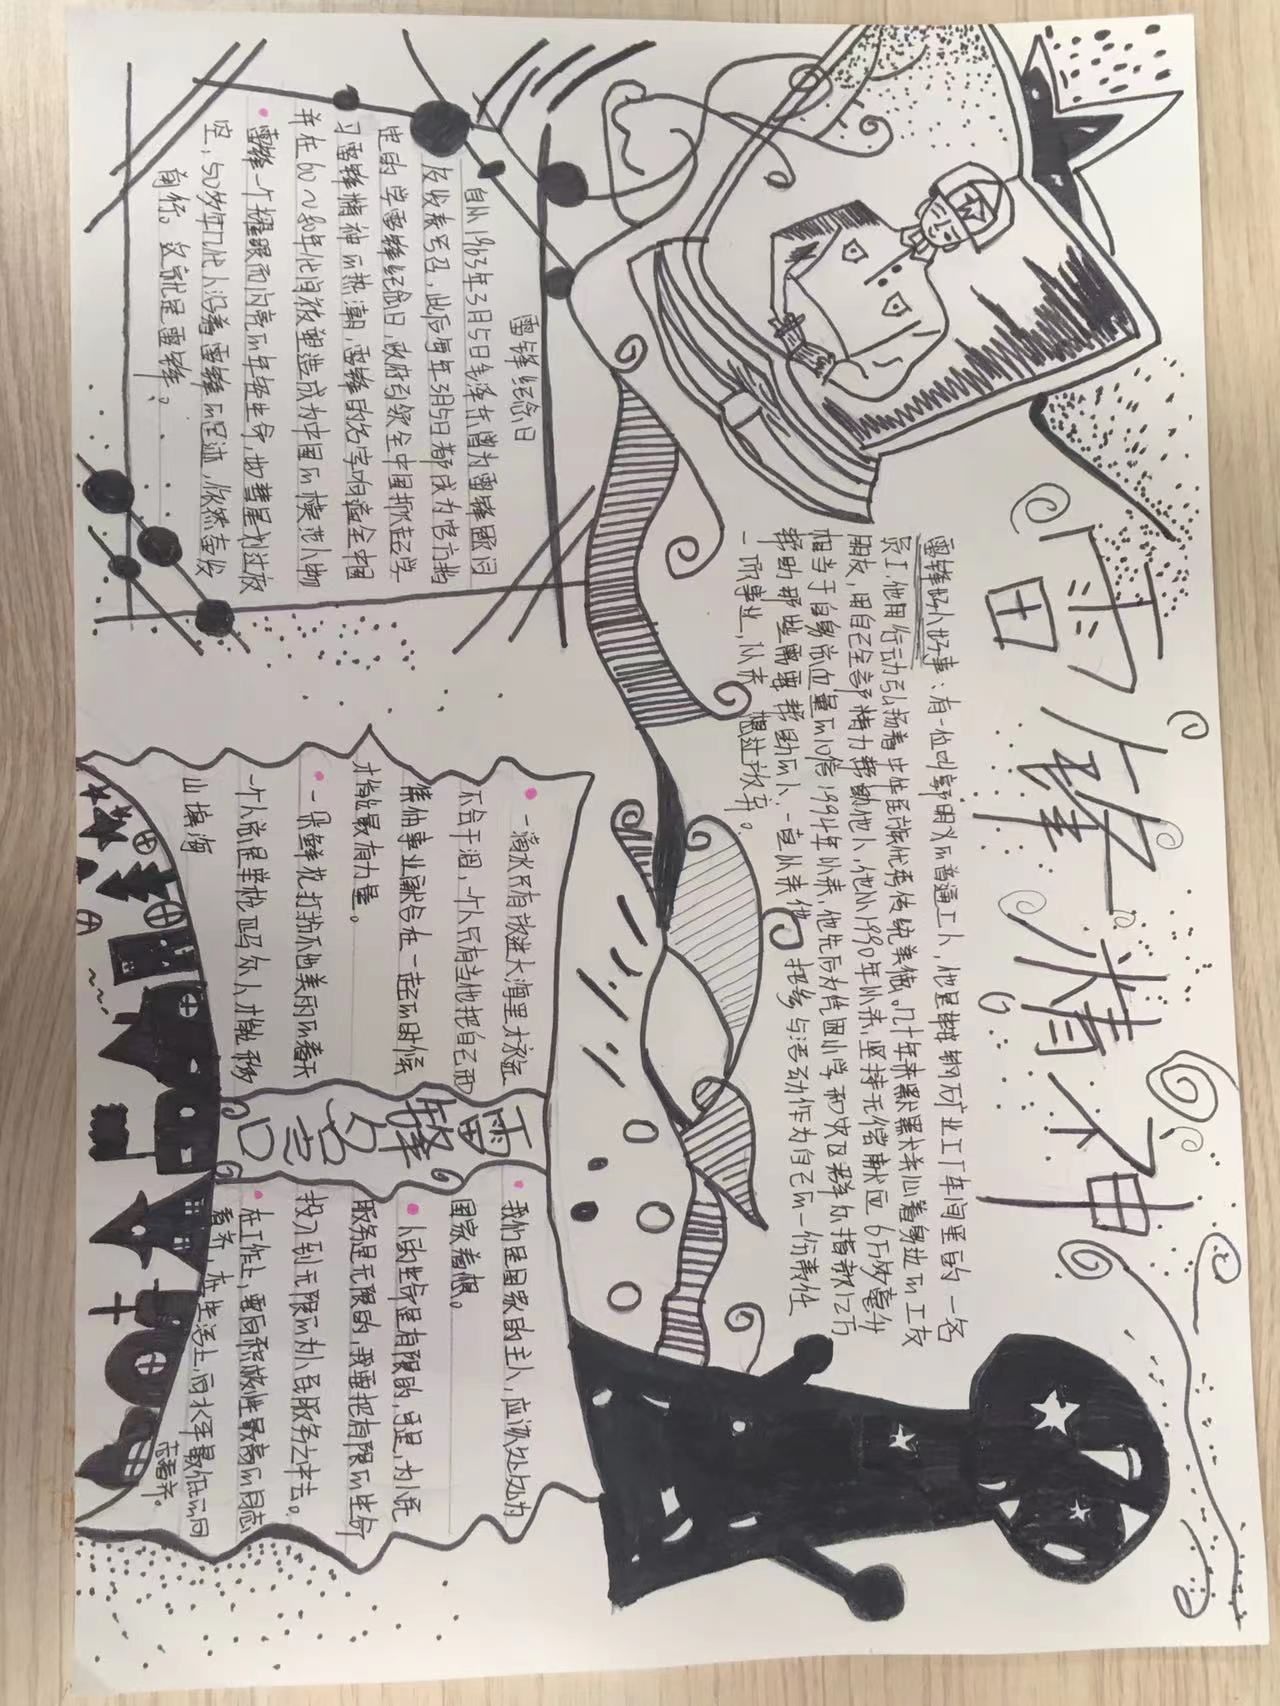 雷锋精神
雷锋好人好事：有一位叫郭明义的普通工人，他是鞍钢矿业工厂车间里的一名
员工，他用行动弘扬着中华民族优秀传统美德。几十年来默默关心着身边的工友
朋友，用自己全部精力帮助他人，他从1990年以来，坚持无偿献应6万多毫升
相当于自身总血量的10倍1994年以来，他先后为贫困小学和灾区群众捐款12万
帮助那些需要帮助的人，一直从来他 把参与活动作为自己的一份责任
一项事业，从来 想过放弃。
雷锋纪念日
自从1963年3月5日毛泽东曾为雷锋题词
及发表号召，此后每年3月5日都成为官方指
定的学雷锋纪念日，政府引领全中国掀起学
习雷锋精神的热潮，雷锋的名字响遍全中国
并在60~80年代间被塑造成为中国的模范人物
雷锋一个耀眼而闪亮的年轻生命，如彗星划过夜
空，50多年几代人沿着雷锋的足迹，依然奋发
前行。这就是雷锋。
一滴水只有放进大海里才永远
不会干涸，一个人只有当他把自己和
集体事业融合在一起的时候
才能最有力量。
一朵鲜花打扮不出美丽的春天
一个人总是单枪匹马众人才能移
山填海
雷锋名言
我们是国家的主人，应该处处为
国家着想。
人的生命是有限的，可是，为人民
服务是无限的，我要把有限的生命
投入到无限的为人民服务之中去。
在工作上，要向积极性最高的同志
看齐，在生活上，向水平最低的同
志看齐。